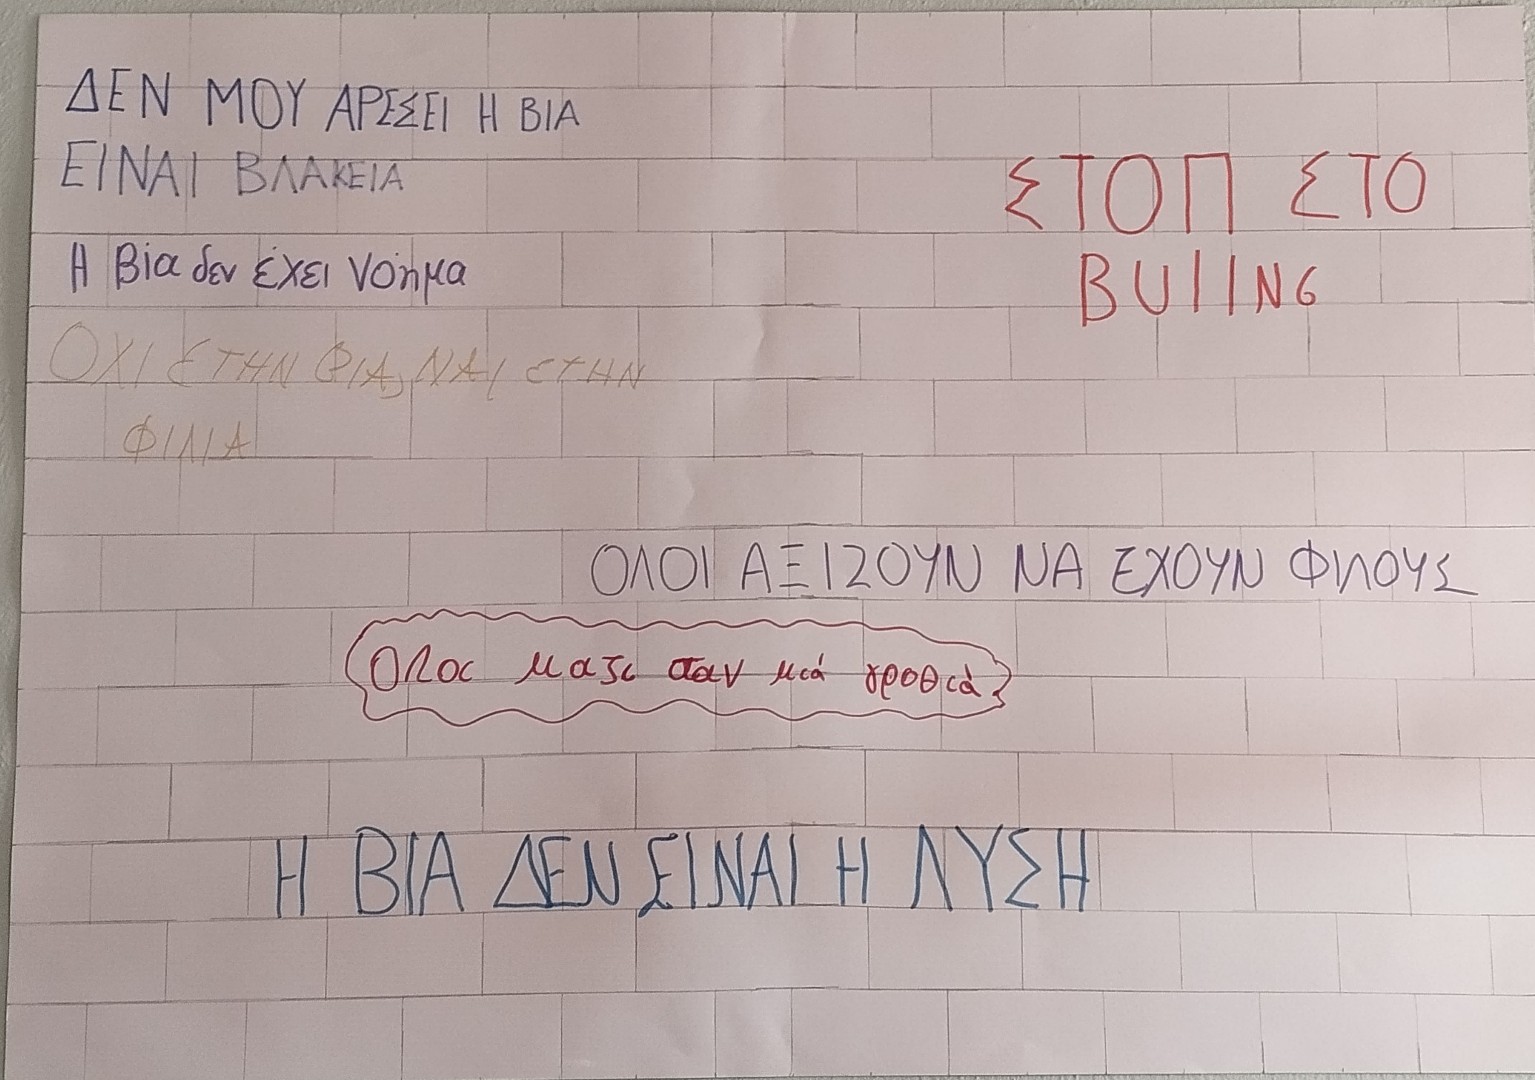 ΔΕΝ ΜΟΥ ΑΡΕΣΕΙ Η ΒΙΑ
ΕΙΝΑΙ ΒΛΑΚΕΙΑ
Η Βία δεν έχει νόημα
ΟΧΙ ΣΤΗΝ ΒΙΑ, ΝΑΙ ΣΤΗΝ
ΦΙΛΙΑ
ΣΤΟΠ ΣΤΟ
BUllING
ΟΛΟΙ ΑΞΙΖΟΥΝ ΝΑ ΕΧΟΥΝ ΦΙΛΟΥΣ
Ολοι μαζι σαν μιά γροθιά
Η ΒΙΑ ΔΕΝ ΕΙΝΑΙ Η ΛΥΣΗ